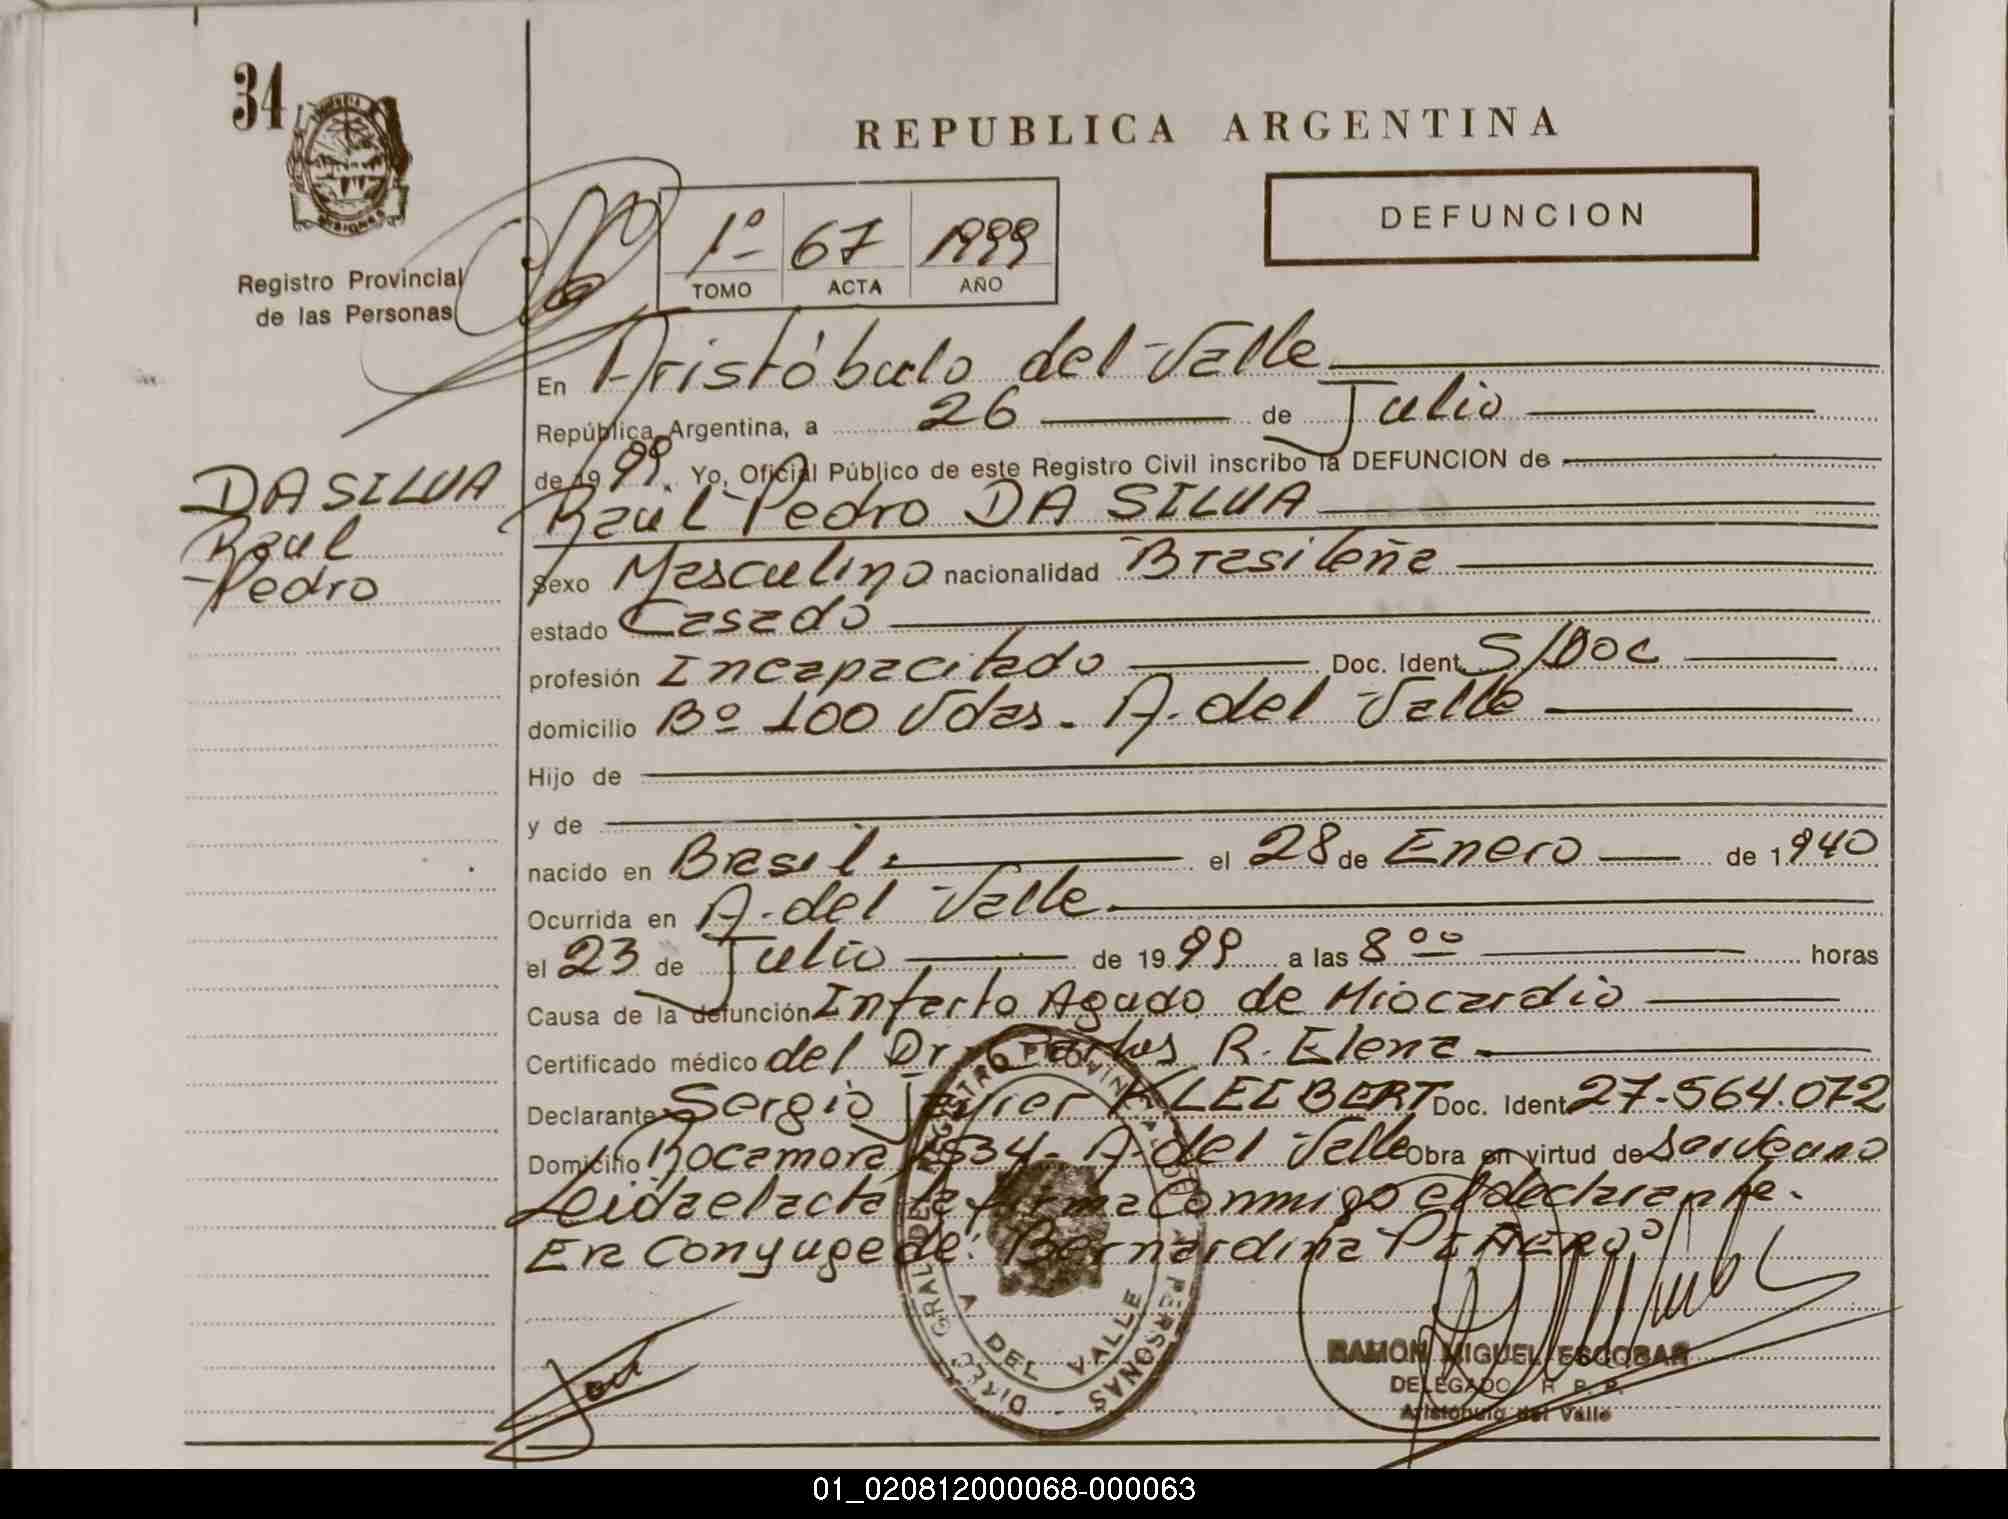 34
REPUBLICA ARGENTINA
DEFUNCION
1º 67 1999
TOMO ACTA AÑO
MISIONES
Registro Provincial
de las Personas
En Aristóbulo del Valle
República Argentina, a 26 de Julio
de 1999. Yo, Oficial Público de este Registro Civil inscribo la DEFUNCION de
DA SILVA
Raul
Pedro
Raul Pedro DA SILVA
Sexo Masculino nacionalidad Brasileña
estado Casado
profesión Incapacitado Doc. Ident. S/Doc
domicilio Bº 100 Vdas. A. del Valle
Hijo de
y de
nacido en Brasil. el 28 de Enero de 1940
Ocurrida en A. del Valle.
el 23 de Julio de 1999 a las 8 ºº horas
Causa de la defunción Infarto Agudo de Miocardio
Certificado médico del Dr. Carlos R. Elena
Declarante Sergio Javier KLEIBERT Doc. Ident. 27.564.072
Domicilio Rocamora 1534- A. del Valle Obra en virtud de
Leida el acta la firma Conmigo el declarante.
Era Conyuge de: Bernardina
DIREC. GRAL. DEL REGISTRO PROVINCIAL DE LAS PERSONAS
A. DEL VALLE
RAMON MIGUEL ESCOBAR
DELEGADO R. P. P.
Aristóbulo del Valle
01_020812000068-000063